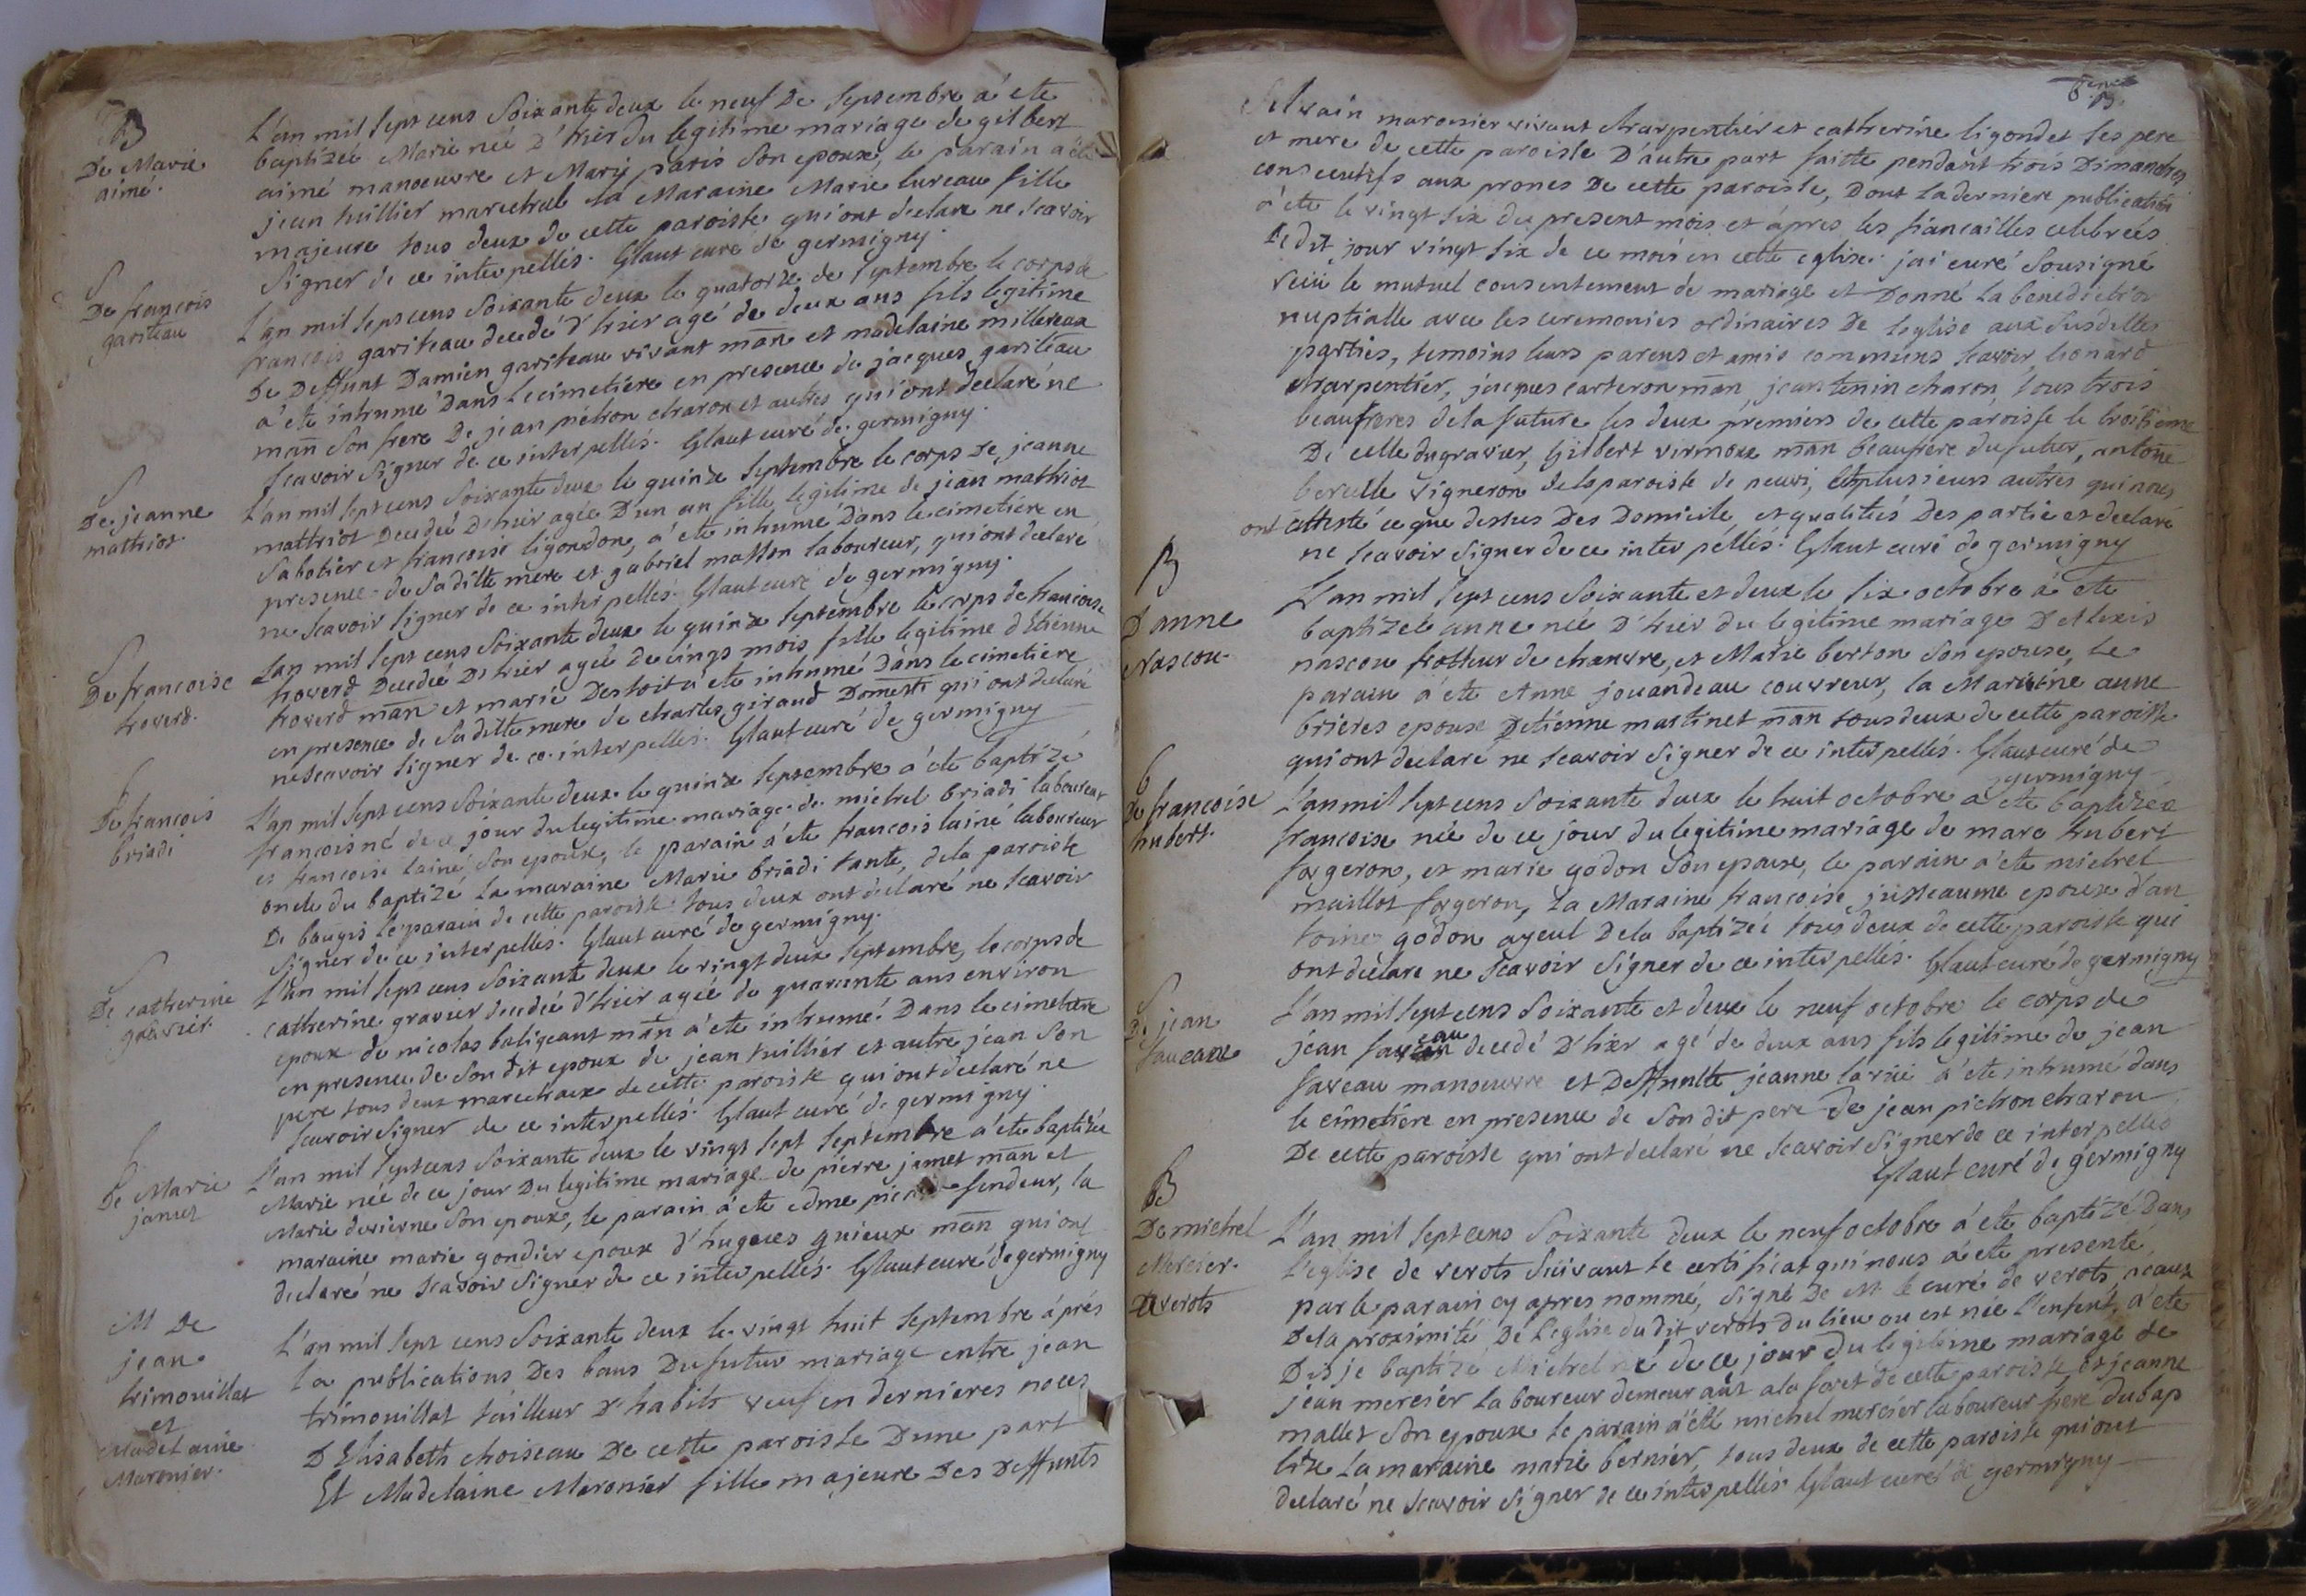 B
De Marie
aimé.
L'an mil sept cens Soixante deux le neuf De Septembre a été
baptizée Marie née D'hier du legitime mariage de gilbert
aimé manoeuvre et Mary paris Son epouse, le parain a été
jean huillier marechal la Maraine Marie lureau fille
majeure tous deux de cette paroisse qui ont declaré ne Scavoir
Signer de ce interpellés. Glaut curé de germigny.
S
De françois
gariteau
L'an mil sept cens Soixante deux le quatorze de Septembre le corps de
françois gariteau decedé d'hier agé de deux ans fils legitime
De Deffunt Damien gariteau vivant man et madelaine millereau
a été inhumé Dans le cimetiere en presence de jacques gariteau
man Son frere De jean pichon charon et autres qui ont declaré ne
Scavoir Signer de ce interpellés. Glaut curé de germigny.
S
De jeanne
mathiot.
L'an mil sept cens Soixante deux le quinze Septembre le corps De jeanne
mathiot Decedée D'hier agée D'un an fille legitime de jean mathiot
Sabotier et françoise ligondon, a été inhumé Dans le cimetiere en
presence de Sa ditte mere et gabriel masson laboureur, qui ont declaré
ne Scavoir Signer de ce interpellés. Glaut curé de germigny.
S
De françoise
hoverd.
L'an mil sept cens Soixante deux le quinze Septembre le corps de françoise
hoverd Decedée D'hier agée de cinqs mois fille legitime d'Etienne
hoverd man et marie Destoit a été inhumé dans le cimetiere
en presence de Sa ditte mere de charles giraud Domesti qui ont declaré
ne Scavoir Signer de ce interpellés. Glaut curé de germigny
B
De françois
briadi
L'an mil sept cens Soixante deux le quinze Septembre a été baptizé
françois né de ce jour du legitime mariage de michel briadi laboureur
et françoise lainé Son epouse, le parain a été françois lainé laboureur
oncle du baptizé la maraine Marie briadi tante, de la paroisse
De baugis le parain de cette paroisse tous deux ont declaré ne Scavoir
Signer de ce interpellés. Glaut curé de germigny.
S
De catherine
gravier.
L'an mil sept cens Soixante deux le vingt deux Septembre, le corps de
catherine gravier decedée d'hier agée de quarante ans environ
epoux de nicolas baligeant man a été inhumé Dans le cimetiere
en presence de Son dit epoux de jean huillier et autre jean Son
pere tous deux marechaux de cette paroisse qui ont declaré ne
Scavoir Signer de ce interpellés. Glaut curé de germigny.
B
De Marie
jamet
L'an mil sept cens Soixante deux le vingt Sept Septembre a été baptizée
Marie née de ce jour Du legitime mariage de pierre jamet man et
Marie devierne Son epoux, le parain a été edme fendeur, la
maraine marie gondier epoux d'hugues guieux man qui ont
declaré ne Scavoir Signer de ce interpellés. Glaut curé de germigny
M De
jean
trimouillat
et
Madelaine
Maronier.
L'an mil Sept cens Soixante deux le vingt huit Septembre après
la publications Des bans Du futur mariage entre jean
trimouillat tailleur D'habits veuf en dernieres noces
D'Elisabeth choiseau De cette paroisse Dune part
Et Madelaine Maronier fille majeure Des Deffunts
Silvain maronier vivant charpentier et catherine ligondet Ses pere
et mere de cette paroisse D'autre part faitte pendant trois Dimanches
consecutifs aux prones De cette paroisse, Dont la derniere publication
a été le vingt Six du present mois et apres les fiançailles celebrées
le dit jour vingt Six de ce mois en cette eglise. jai curé Sousigné
reçu le mutuel consentement de mariage et Donné la benediction
nuptialle avec les ceremonies ordinaires De leglise aux Susdittes
parties, temoins leurs parens et amis communs Scavoir, leonard
charpentier, jacques carteron man, jean tenin charon, tous trois
beaufreres de la future les deux premiers de cette paroisse le troisieme
De celle du gravier, Gilbert vermoux man beaufrere du futur, antoine
berulle vigneron de la paroisse de neuvi, et plusieurs autres qui nous
ont attesté ce que dessus Des Domicile et qualités Des partie et declaré
ne Scavoir Signer de ce interpellés. Glaut curé de germigny
B
D'anne
Nascou.
L'an mil Sept cens Soixante et deux le Six octobre a été
baptizée anne née D'hier du legitime mariage D'Alexis
nascou frotteur de chanvre, et Marie berton Son epouse, le
parain a été Anne jouandeau couvreur, la Maraine anne
brieres epouse D'etienne martinet man tous deux de cette paroisse
qui ont declaré ne Scavoir Signer de ce interpellés. Glaut curé de
germigny
B
De françoise
hubert.
L'an mil Sept cens Soixante deux le huit octobre a été baptizée
françoise née de ce jour du legitime mariage de marc hubert
forgeron, et marie godon Son epouse, le parain a été michel
maillot forgeron, la Maraine françoise jusseaume epouse d'an
toine godon ayeul De la baptizée tous deux de cette paroisse qui
ont declaré ne Scavoir Signer de ce interpellés. Glaut curé de germigny
S
De jean
faveau
L'an mil Sept cens Soixante et deux le neuf octobre le corps de
jean faveau decedé D'hier agé de deux ans fils legitime de jean
faveau manoeuvre et Deffuntte jeanne a été inhumé dans
le cimetiere en presence de Son dit pere De jean pichon charon
De cette paroisse qui ont declaré ne Scavoir Signer de ce interpellés
Glaut curé de germigny
B
De michel
Mercier.
a verots
L'an mil Sept cens Soixante deux le neuf octobre a été baptizé Dans
l'eglise de verots Suivant le certificat qui nous a été presenté
par le parain cy apres nommé, Signé De M. le curé de verots, acause
De la proximité De l'eglise du dit verots du lieu ou est née L'enfent, a été
Dis je baptizé Michel né de ce jour du legitime mariage de
jean mercier laboureur demeurant a la foret de cette paroisse et jeanne
mallet Son epouse le parain a été michel mercier laboureur frere du bap
tizé la maraine marie bernier, tous deux de cette paroisse qui ont
declaré ne Scavoir Signer de ce interpellés Glaut curé de germigny